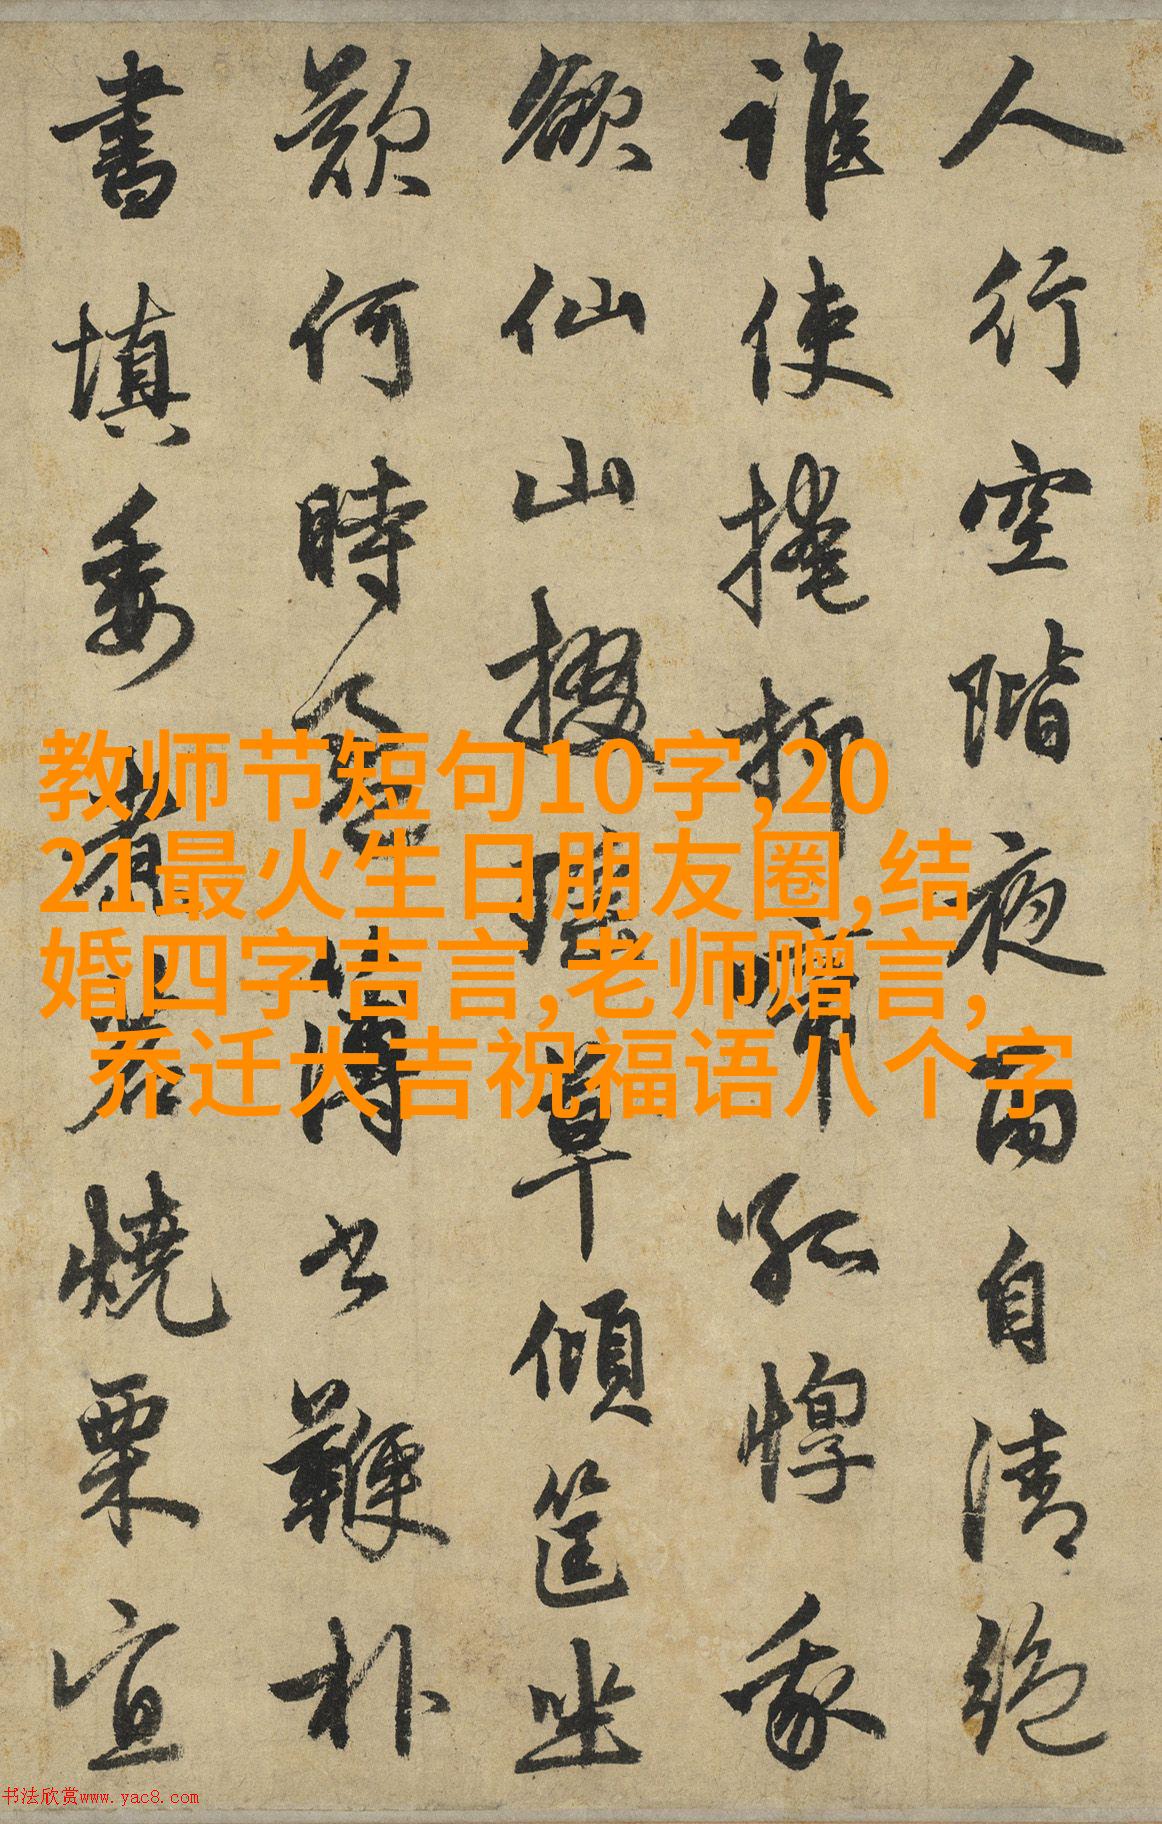 人行空階夜雨自清絕
誰使掩抑啼孤惸我
欲仙山掇瑤草傾筐坐
歎何時盈簿書鞭朴
晝填委煮茗燒栗宜
教师节短句10字,20
21最火生日朋友圈,结
婚四字吉言,老师赠言,
乔迁大吉祝福语八个字
书法欣赏www.yac8.com